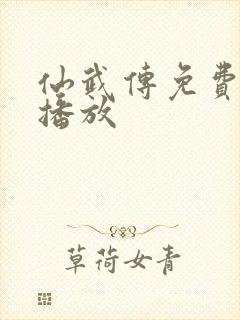 仙武傳免費
播放
草荷女青